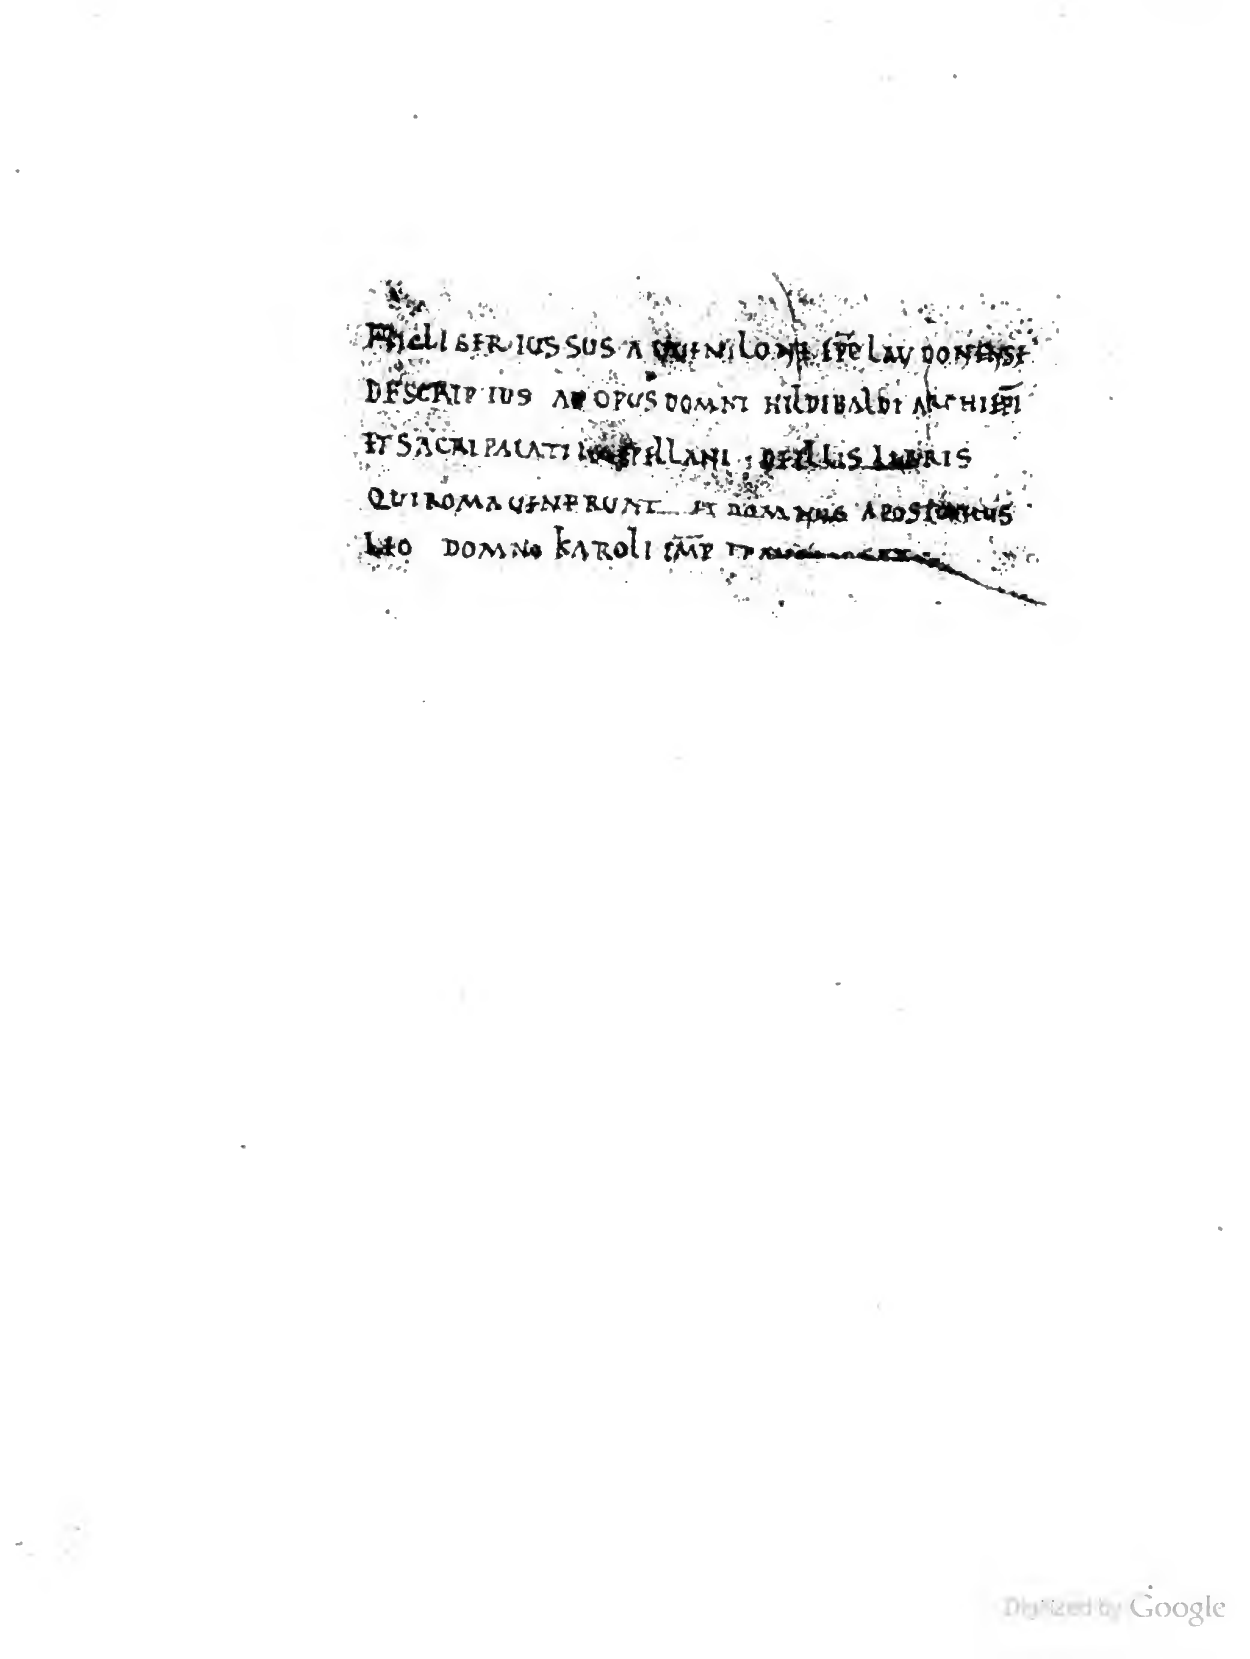 LIBER IUSSUS A UUENILONE EPO LAUDONENSE
DESCRIPTUS AD OPUS DOMNI HILDIBALDI ARCHIEPI
ET SACRI PALATI CAPELLANI DE ILLIS LIBRIS
QUI ROMA VENERUNT ET DOMNUS APOSTOLICUS
LEO DOMNO KAROLI IMP
Digitized by Google